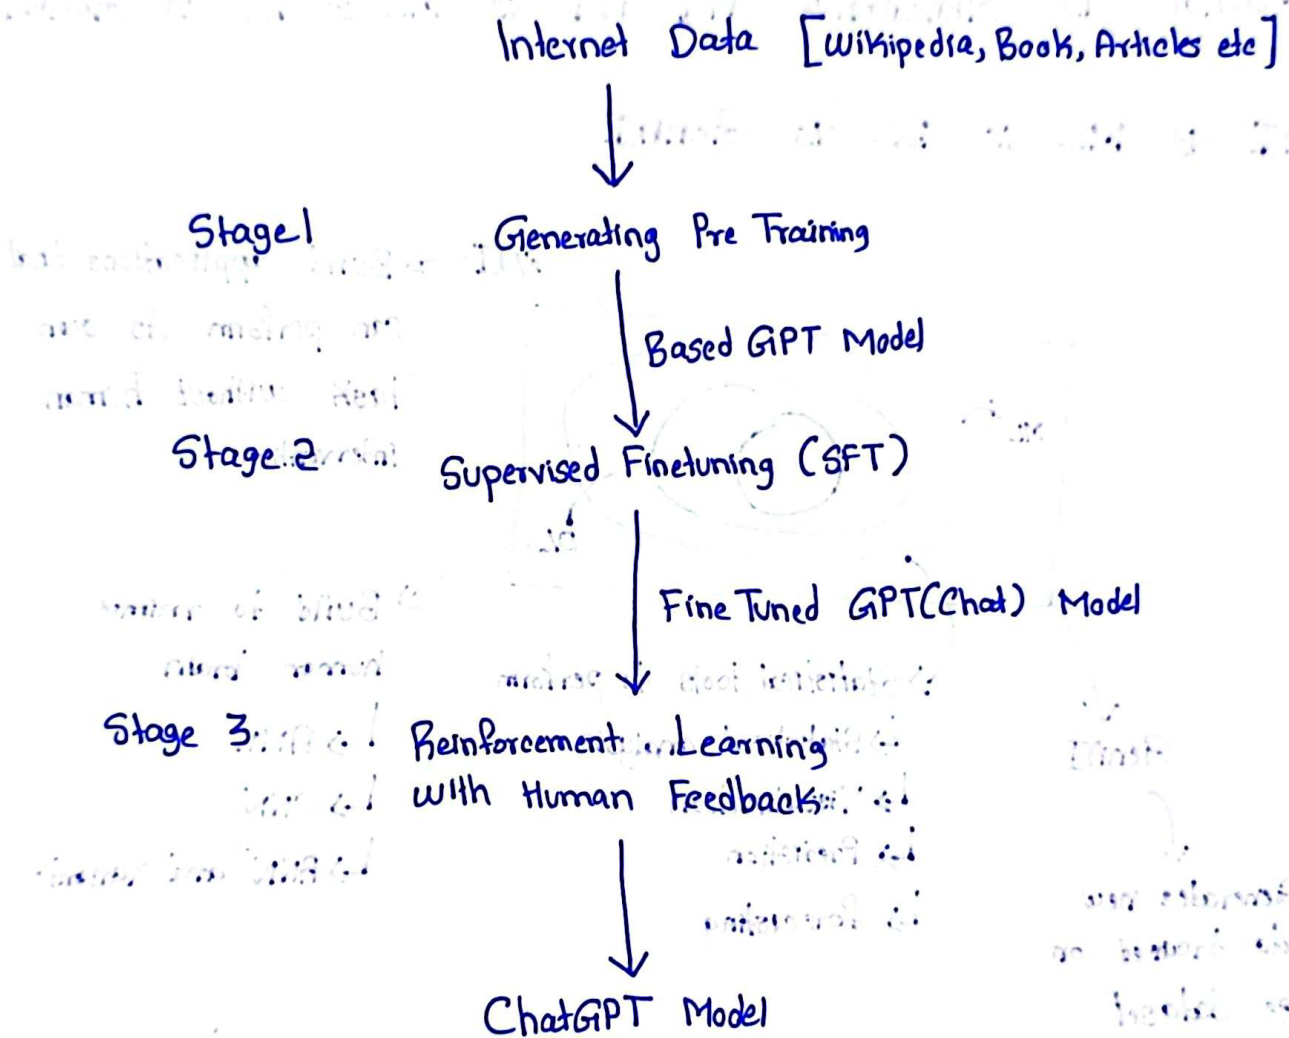 Internet Data [Wikipedia, Book, Articles etc]
Stage1 Generating Pre Training
Based GPT Model
Stage 2 Supervised Finetuning (SFT)
Fine Tuned GPT(Chat) Model
Stage 3 Reinforcement Learning
with Human Feedback
ChatGPT Model